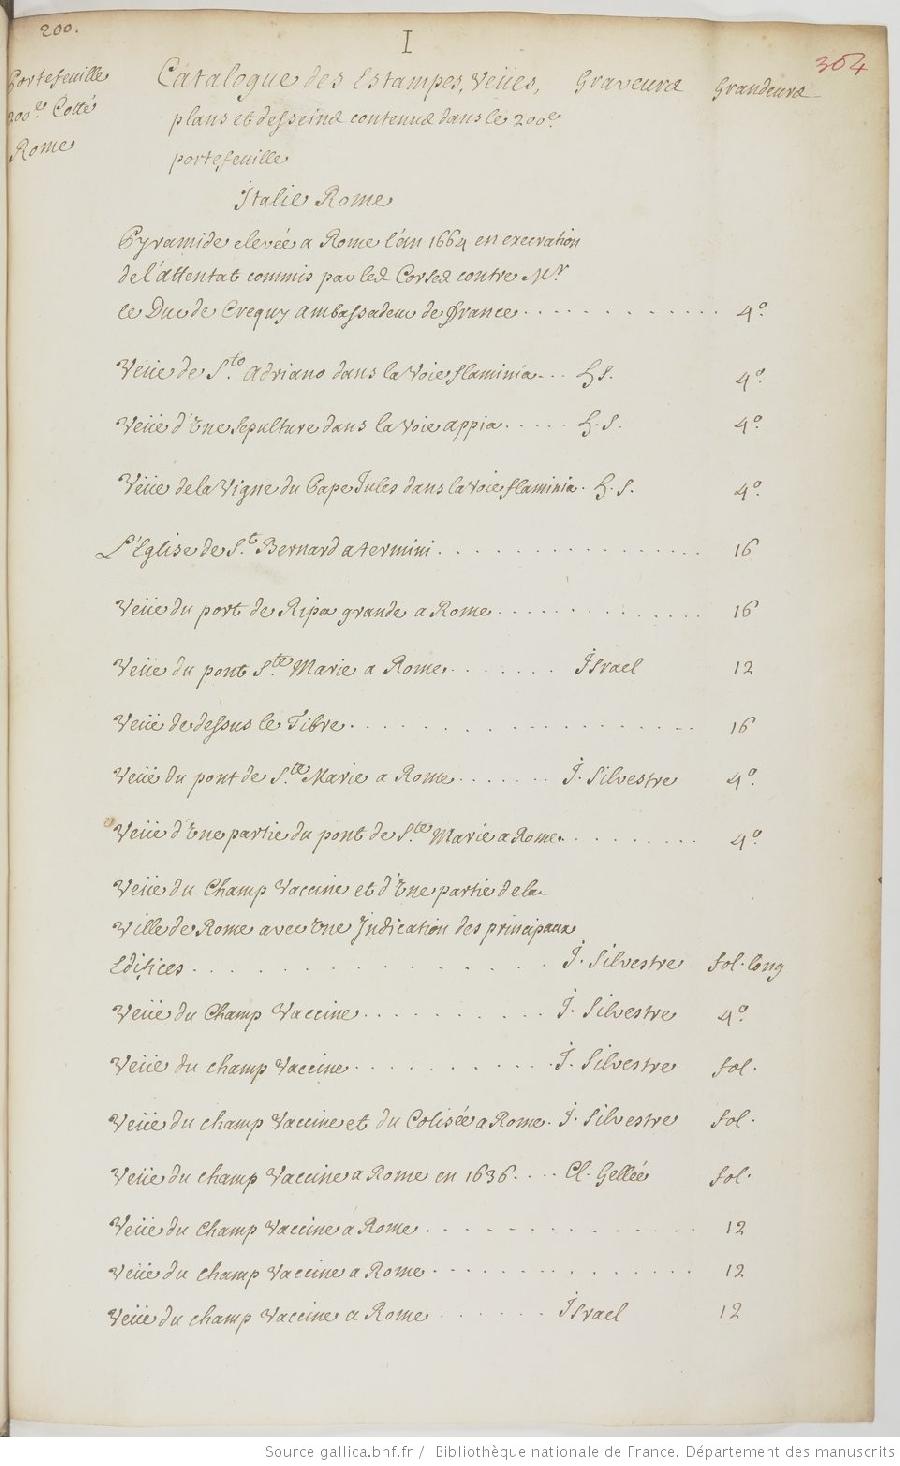 200.
I
364
Portefeuille
200e Cotté
Rome
Catalogue des Estampes, Veües, Graveurs Grandeurs
plans et desseins contenus dans le 200e
portefeuille
Italie Rome
Pyramide elevée a Rome l'an 1664 en execration
de l'attentat commis par les Corses contre Mr
le Duc de Crequy ambassadeur de france . . . . . . . . . . . . 4°.
Veüe de Sto Adriano dans la Voie flaminia . . . h. S. 4°.
Veüe d'Une sepulture dans la Voie appia . . . . . h. S. 4°.
Veüe de la Vigne du Pape Jules dans la Voie flaminia . h. S. 4°.
L'Eglise de St Bernard a termini . . . . . . . . . . . . . . 16
Veüe du port de Ripa grande a Rome . . . . . . . . . . . . 16
Veüe du pont Ste Marie a Rome . . . . . . . Israel 12
Veüe de dessus le Tibre . . . . . . . . . . . . . . . . . . 16
Veüe du pont de Ste Marie a Rome . . . . . . J. Silvestre 4°.
Veüe d'Une partie du pont de Ste Marie a Rome . . . . . . . . 4°.
Veüe du Champ Vaccine et d'Une partie de la
Ville de Rome avec Une Indication des principaux
Edifices . . . . . . . . . . . . . . . . J. Silvestre fol. long
Veüe du Champ Vaccine . . . . . . . . . . J. Silvestre 4°.
Veüe du champ Vaccine . . . . . . . . . . . J. Silvestre fol.
Veüe du champ Vaccine et du Colisée a Rome . J. Silvestre fol.
Veüe du champ Vaccine a Rome en 1636 . . . . Cl. Gellée fol.
Veüe du Champ Vaccine a Rome . . . . . . . . . . . . . 12
Veüe du champ Vaccine a Rome . . . . . . . . . . . . . 12
Veüe du champ Vaccine a Rome . . . . . . Israel 12
Source gallica.bnf.fr / Bibliothèque nationale de France. Département des manuscrits